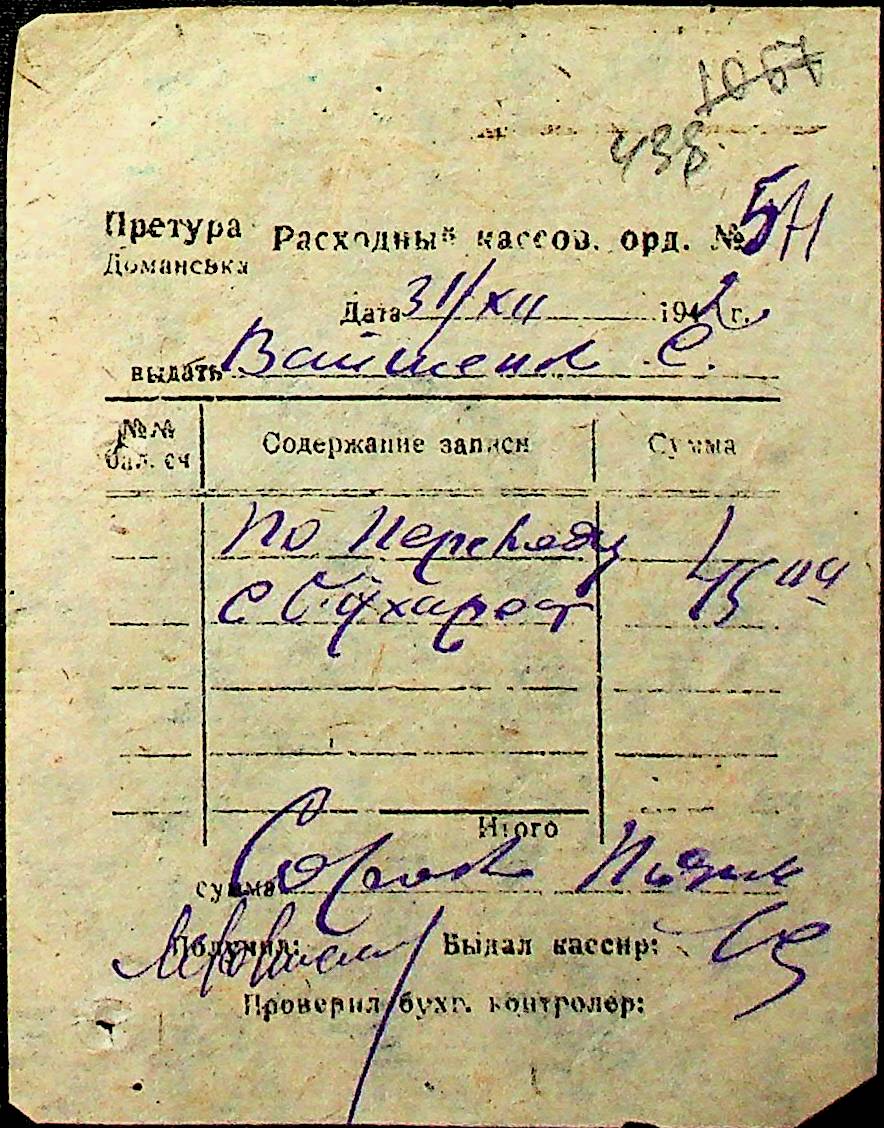 1067
438
Претура Расходный кассов. орд. №571
Доманевка
Дата 31/XII 1942 г.
выдать Вайшенк С.
№№ бал. сч Содержание записи Сумма
По переводу 45
с Бухарест
Итого
сумма Сорок
Получил: Выдал кассир:
Проверил бухг. контролер: